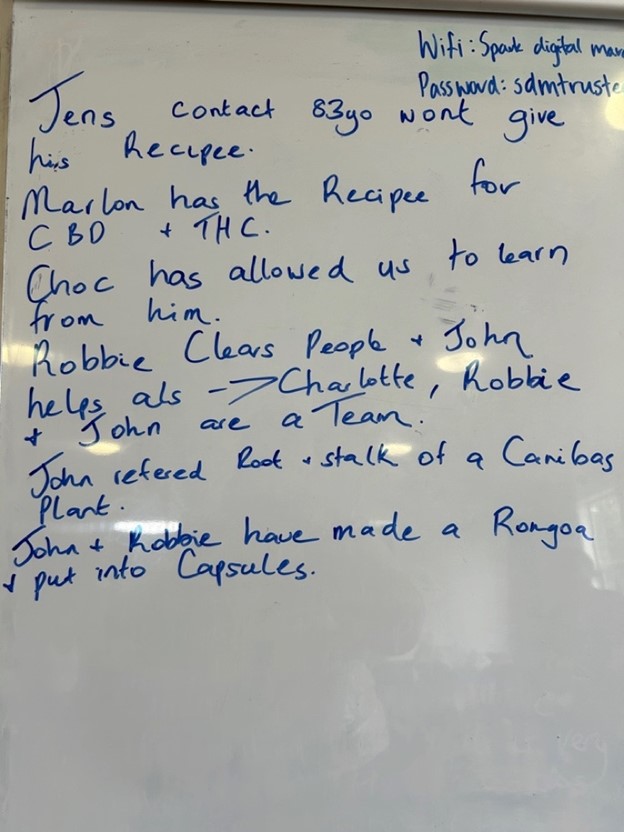 Wifi: Spark digital mar
Password: sdmtruste
Jens contact 83yo wont give
his Recipee.
Marlon has the Recipee for
CBD + THC.
Choc has allowed us to learn
from him.
Robbie Clears People + John
helps als → Charlotte, Robbie
+ John are a Team.
John refered Root + stalk of a Canibas
Plant.
John + Robbie have made a Rongoa
+ put into Capsules.